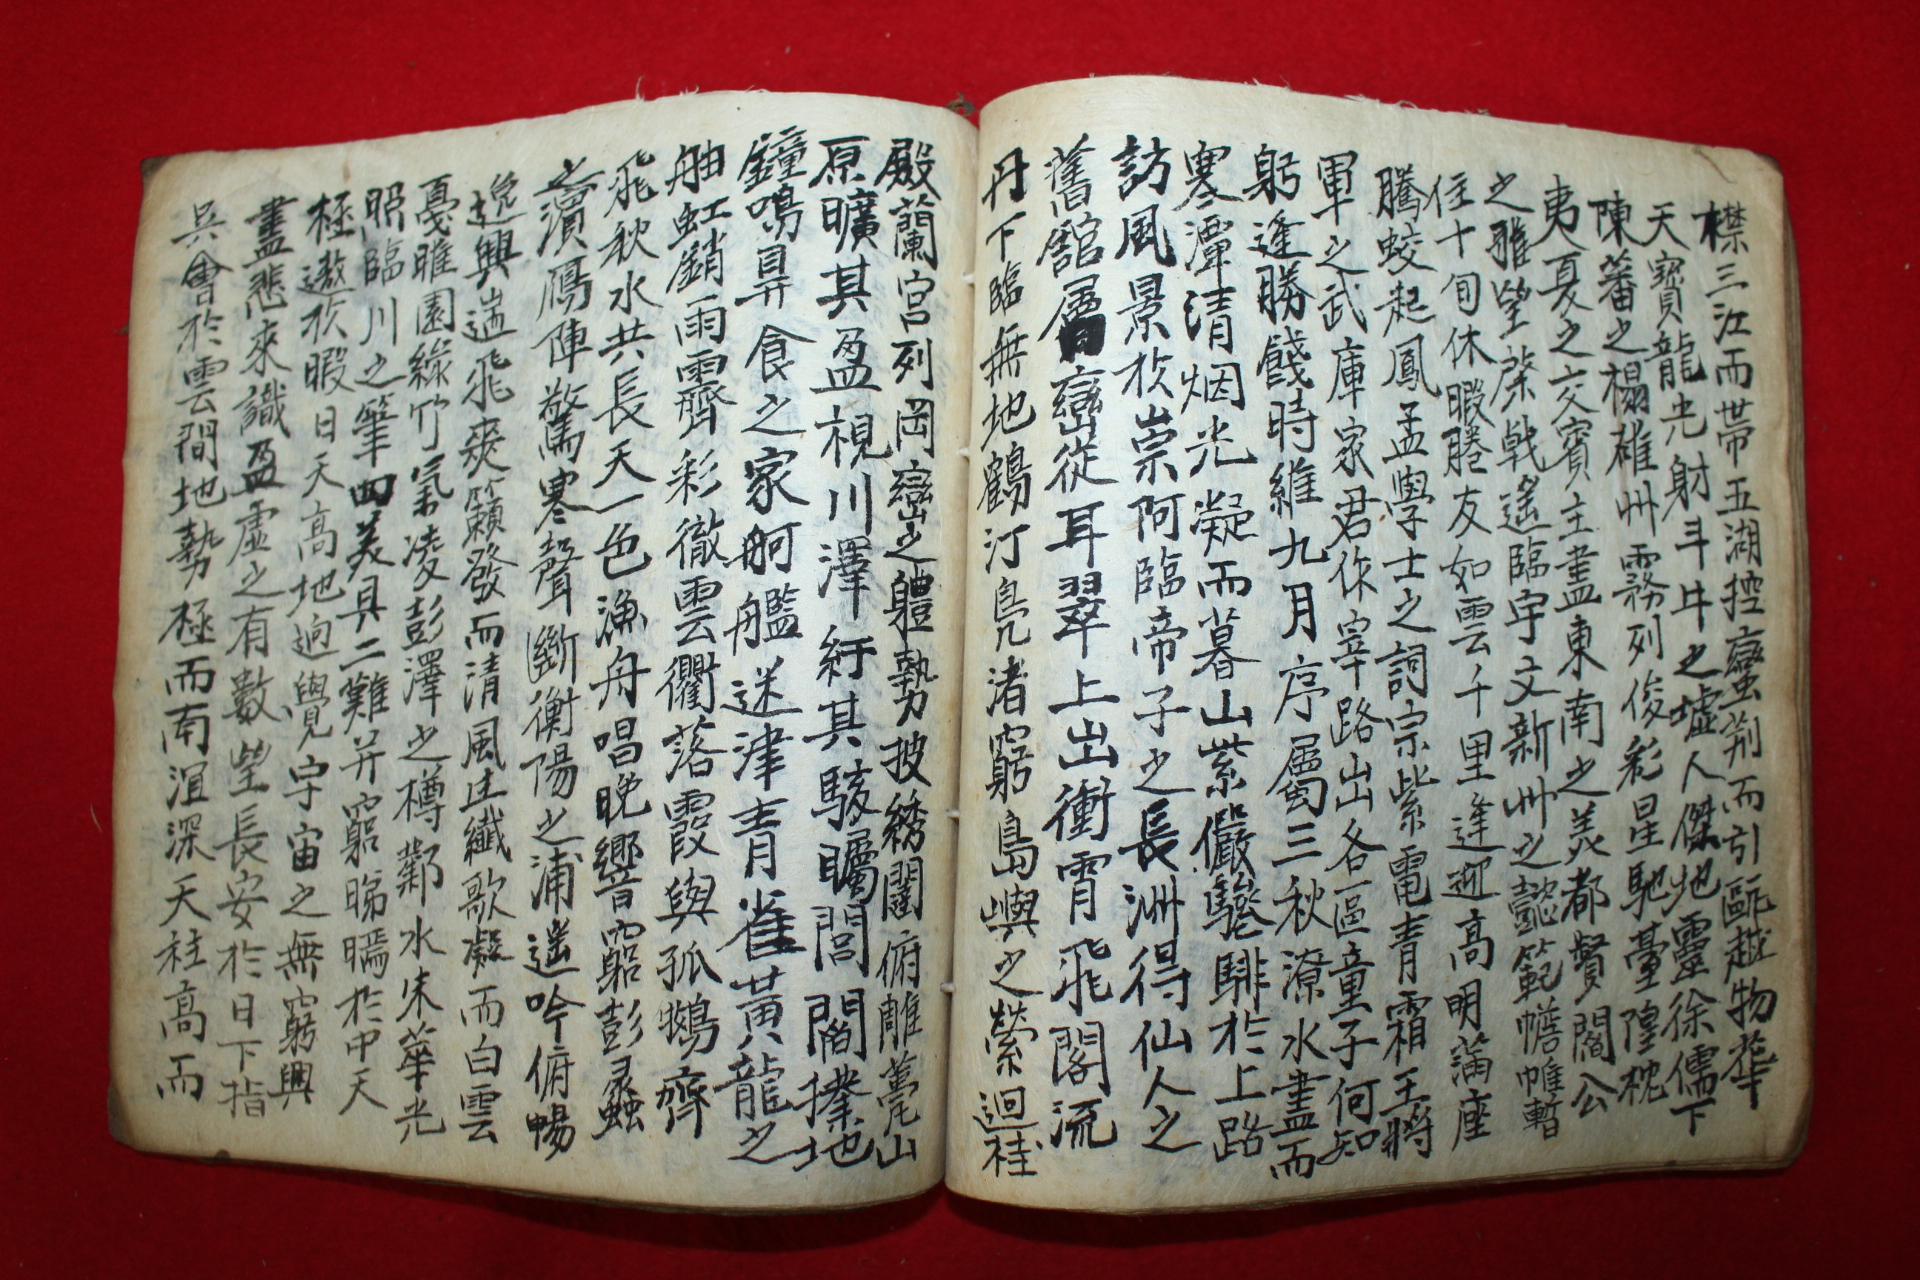 襟三江而帶五湖控蠻荊而引甌越物華
天寶龍光射斗牛之墟人傑地靈徐儒下
陳蕃之榻雄州霧列俊彩星馳臺隍枕
夷夏之交賓主盡東南之美都督閻公
之雅望棨戟遙臨宇文新州之懿範幨帷暫
住十旬休暇勝友如雲千里逢迎高明滿座
騰蛟起鳳孟學士之詞宗紫電青霜王將
軍之武庫家君作宰路出名區童子何知
躬逢勝餞時維九月序屬三秋潦水盡而
寒潭清烟光凝而暮山紫儼驂騑於上路
訪風景於崇阿臨帝子之長洲得仙人之
舊舘層巒從耳翠上出衝霄飛閣流
丹下臨無地鶴汀鳧渚窮島嶼之縈迴桂
殿蘭宮列岡巒之軆勢披綉闥俯雕甍山
原曠其盈視川澤紆其駭矚閭閻撲地
鐘鳴鼎食之家舸艦迷津青雀黃龍之
舳虹銷雨霽彩徹雲衢落霞與孤鶩齊
飛秋水共長天一色漁舟唱晚響窮彭蠡
之濱鴈陣驚寒聲斷衡陽之浦遙吟俯暢
逸興遄飛爽籟發而清風生纖歌凝而白雲
戞睢園綠竹氣凌彭澤之樽鄴水朱華光
照臨川之筆四美具二難并窮睇矊於中天
極遨於暇日天高地逈覺宇宙之無窮興
盡悲來識盈虛之有數望長安於日下指
吳會於雲間地勢極而南溟深天柱高而